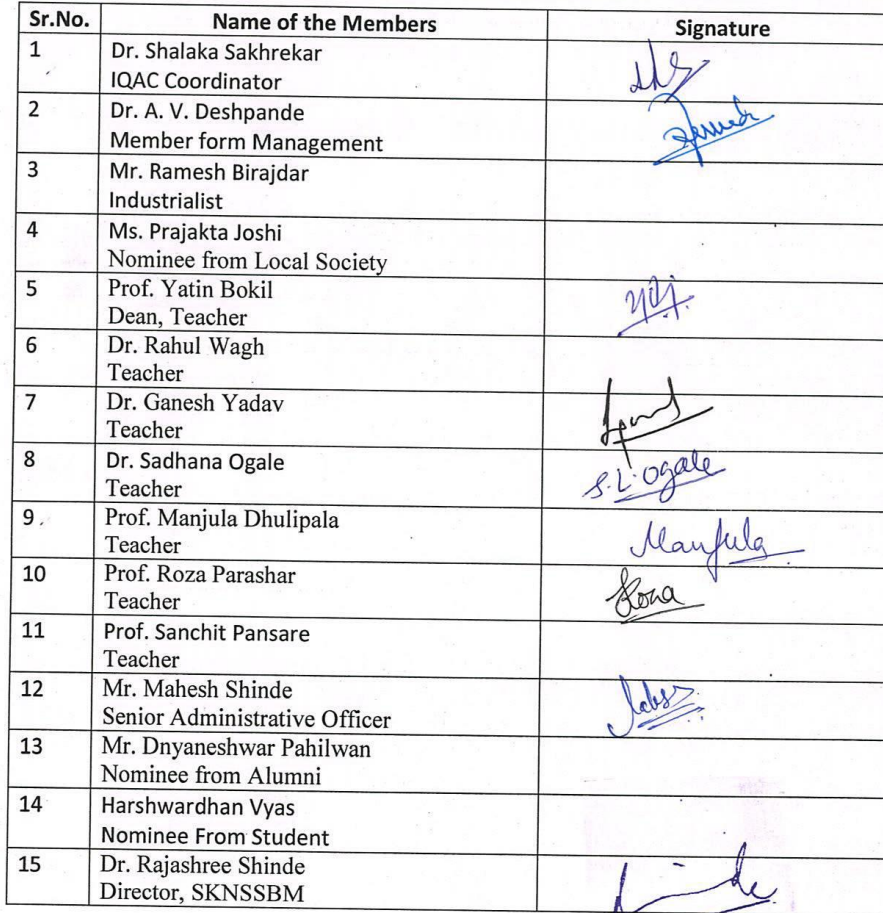 Sr.No. Name of the Members Signature
1 Dr. Shalaka Sakhrekar
IQAC Coordinator
2 Dr. A. V. Deshpande
Member form Management
3 Mr. Ramesh Birajdar
Industrialist
4 Ms. Prajakta Joshi
Nominee from Local Society
5 Prof. Yatin Bokil
Dean, Teacher
6 Dr. Rahul Wagh
Teacher
7 Dr. Ganesh Yadav
Teacher
8 Dr. Sadhana Ogale S.L.Ogale
Teacher
9 Prof. Manjula Dhulipala Manjula
Teacher
10 Prof. Roza Parashar Roza
Teacher
11 Prof. Sanchit Pansare
Teacher
12 Mr. Mahesh Shinde
Senior Administrative Officer
13 Mr. Dnyaneshwar Pahilwan
Nominee from Alumni
14 Harshwardhan Vyas
Nominee From Student
15 Dr. Rajashree Shinde
Director, SKNSSBM